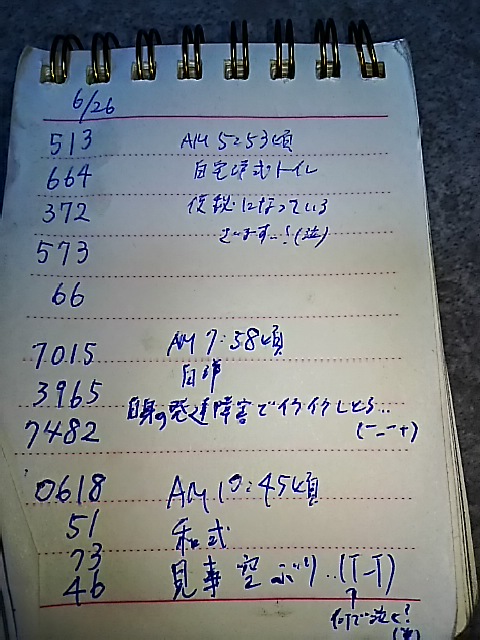 6/26
513 AM 5:53頃
664 自宅洋式トイレ
372 になっている
573 ざいます…!(泣)
66
7015 AM 7:38頃
3965 自
7482 自身の発達障害でイライラしとる…
(ー_ー+)
0618 AM 10:45頃
51 和式
73 見事空ぶり..(T_T)
46 ↑
何で泣く?
(笑)